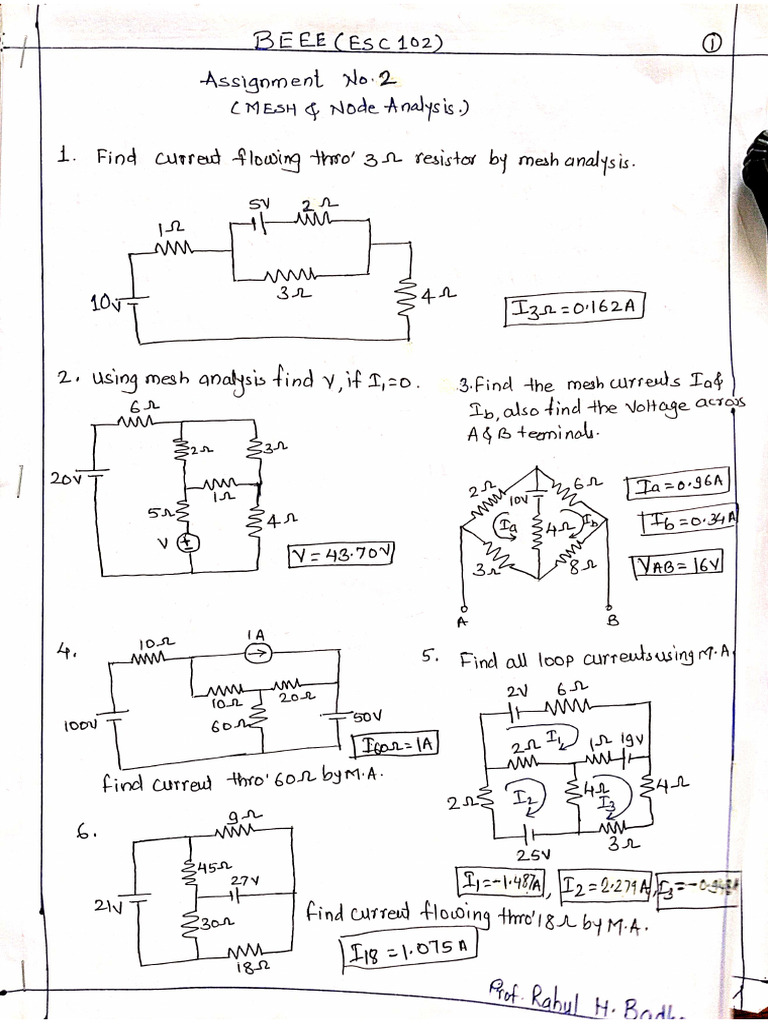 BEEE (ESC 102)
1
Assignment No. 2
(MESH & Node Analysis.)
1. Find current flowing thro' 3Ω resistor by mesh analysis.
5V 2Ω
1Ω
3Ω
10V
4Ω
I3Ω = 0.162A
2. Using mesh analysis find V, if I₁=0.
6Ω
2Ω 3Ω
20V
1Ω
5Ω
4Ω
V
V = 43.70V
3. Find the mesh currents Ia &
Ib, also find the voltage across
A & B terminals.
2Ω 6Ω
10V
Ia 4Ω Ib
3Ω 8Ω
A B
Ia = 0.96A
Ib = 0.34A
VAB = 16V
4.
1A
10Ω
10Ω 20Ω
100V 60Ω 50V
I60Ω = 1A
find current thro' 60Ω by M.A.
5. Find all loop currents using M.A.
2V 6Ω
I₁
2Ω 1Ω 19V
2Ω I₂ 4Ω I₃ 4Ω
3Ω
25V
I₁ = -1.487A, I₂ = 2.279A, I₃ =
6.
9Ω
45Ω
27V
21V
30Ω
18Ω
find current flowing thro' 18Ω by M.A.
I18 = 1.075A
Prof. Rahul H.